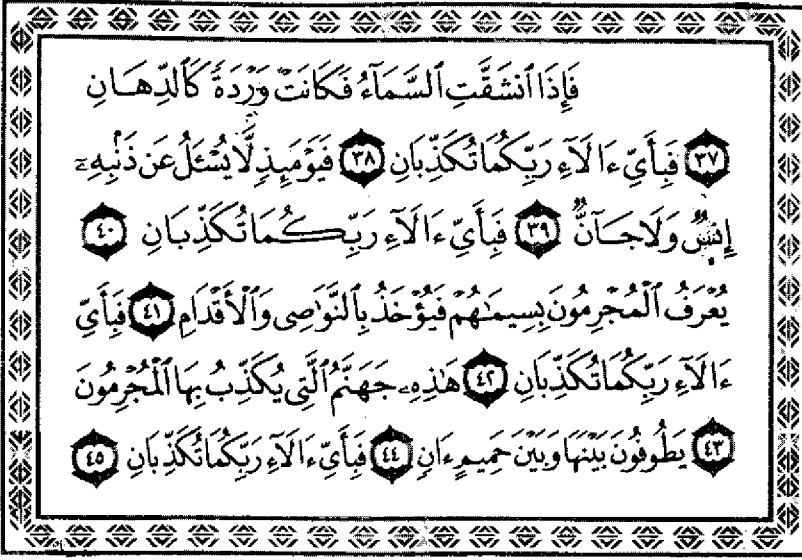 فَإِذَا ٱنشَقَّتِ ٱلسَّمَآءُ فَكَانَتْ وَرْدَةً كَٱلدِّهَـانِ
٣٧ فَبِأَىِّ ءَالَآءِ رَبِّكُمَا تُكَذِّبَانِ ٣٨ فَيَوْمَئِذٍ لَّا يُسْـَٔلُ عَن ذَنۢبِهِۦٓ
إِنسٌ وَلَا جَـآنٌّ ٣٩ فَبِأَىِّ ءَالَآءِ رَبِّـكُمَا تُكَذِّبَـانِ ٤٠
يُعْرَفُ ٱلْمُجْرِمُونَ بِسِيمَـٰهُمْ فَيُؤْخَذُ بِٱلنَّوَٰصِى وَٱلْأَقْدَامِ ٤١ فَبِأَىِّ
ءَالَآءِ رَبِّكُمَا تُكَذِّبَانِ ٤٢ هَـٰذِهِۦ جَهَنَّمُ ٱلَّتِى يُكَذِّبُ بِهَا ٱلْمُجْرِمُونَ
٤٣ يَطُوفُونَ بَيْنَهَا وَبَيْنَ حَمِيمٍ ءَانٍ ٤٤ فَبِأَىِّ ءَالَآءِ رَبِّكُمَا تُكَذِّبَانِ ٤٥